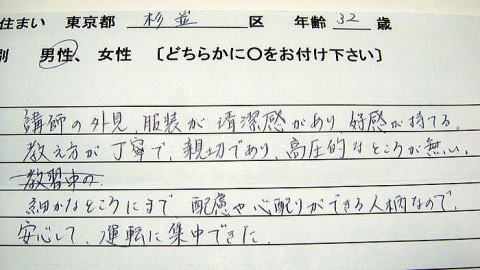 住まい 東京都 杉並 区 年齢 32 歳
別 男性、女性 〔どちらかに〇をお付け下さい〕
講師の外見、服装が清潔感があり好感が持てる。
教え方が丁寧で、親切であり、高圧的なところが無い。
教習中の
細かなところにまで 配慮や心配りができる人柄なので、
安心して、運転に集中できた。